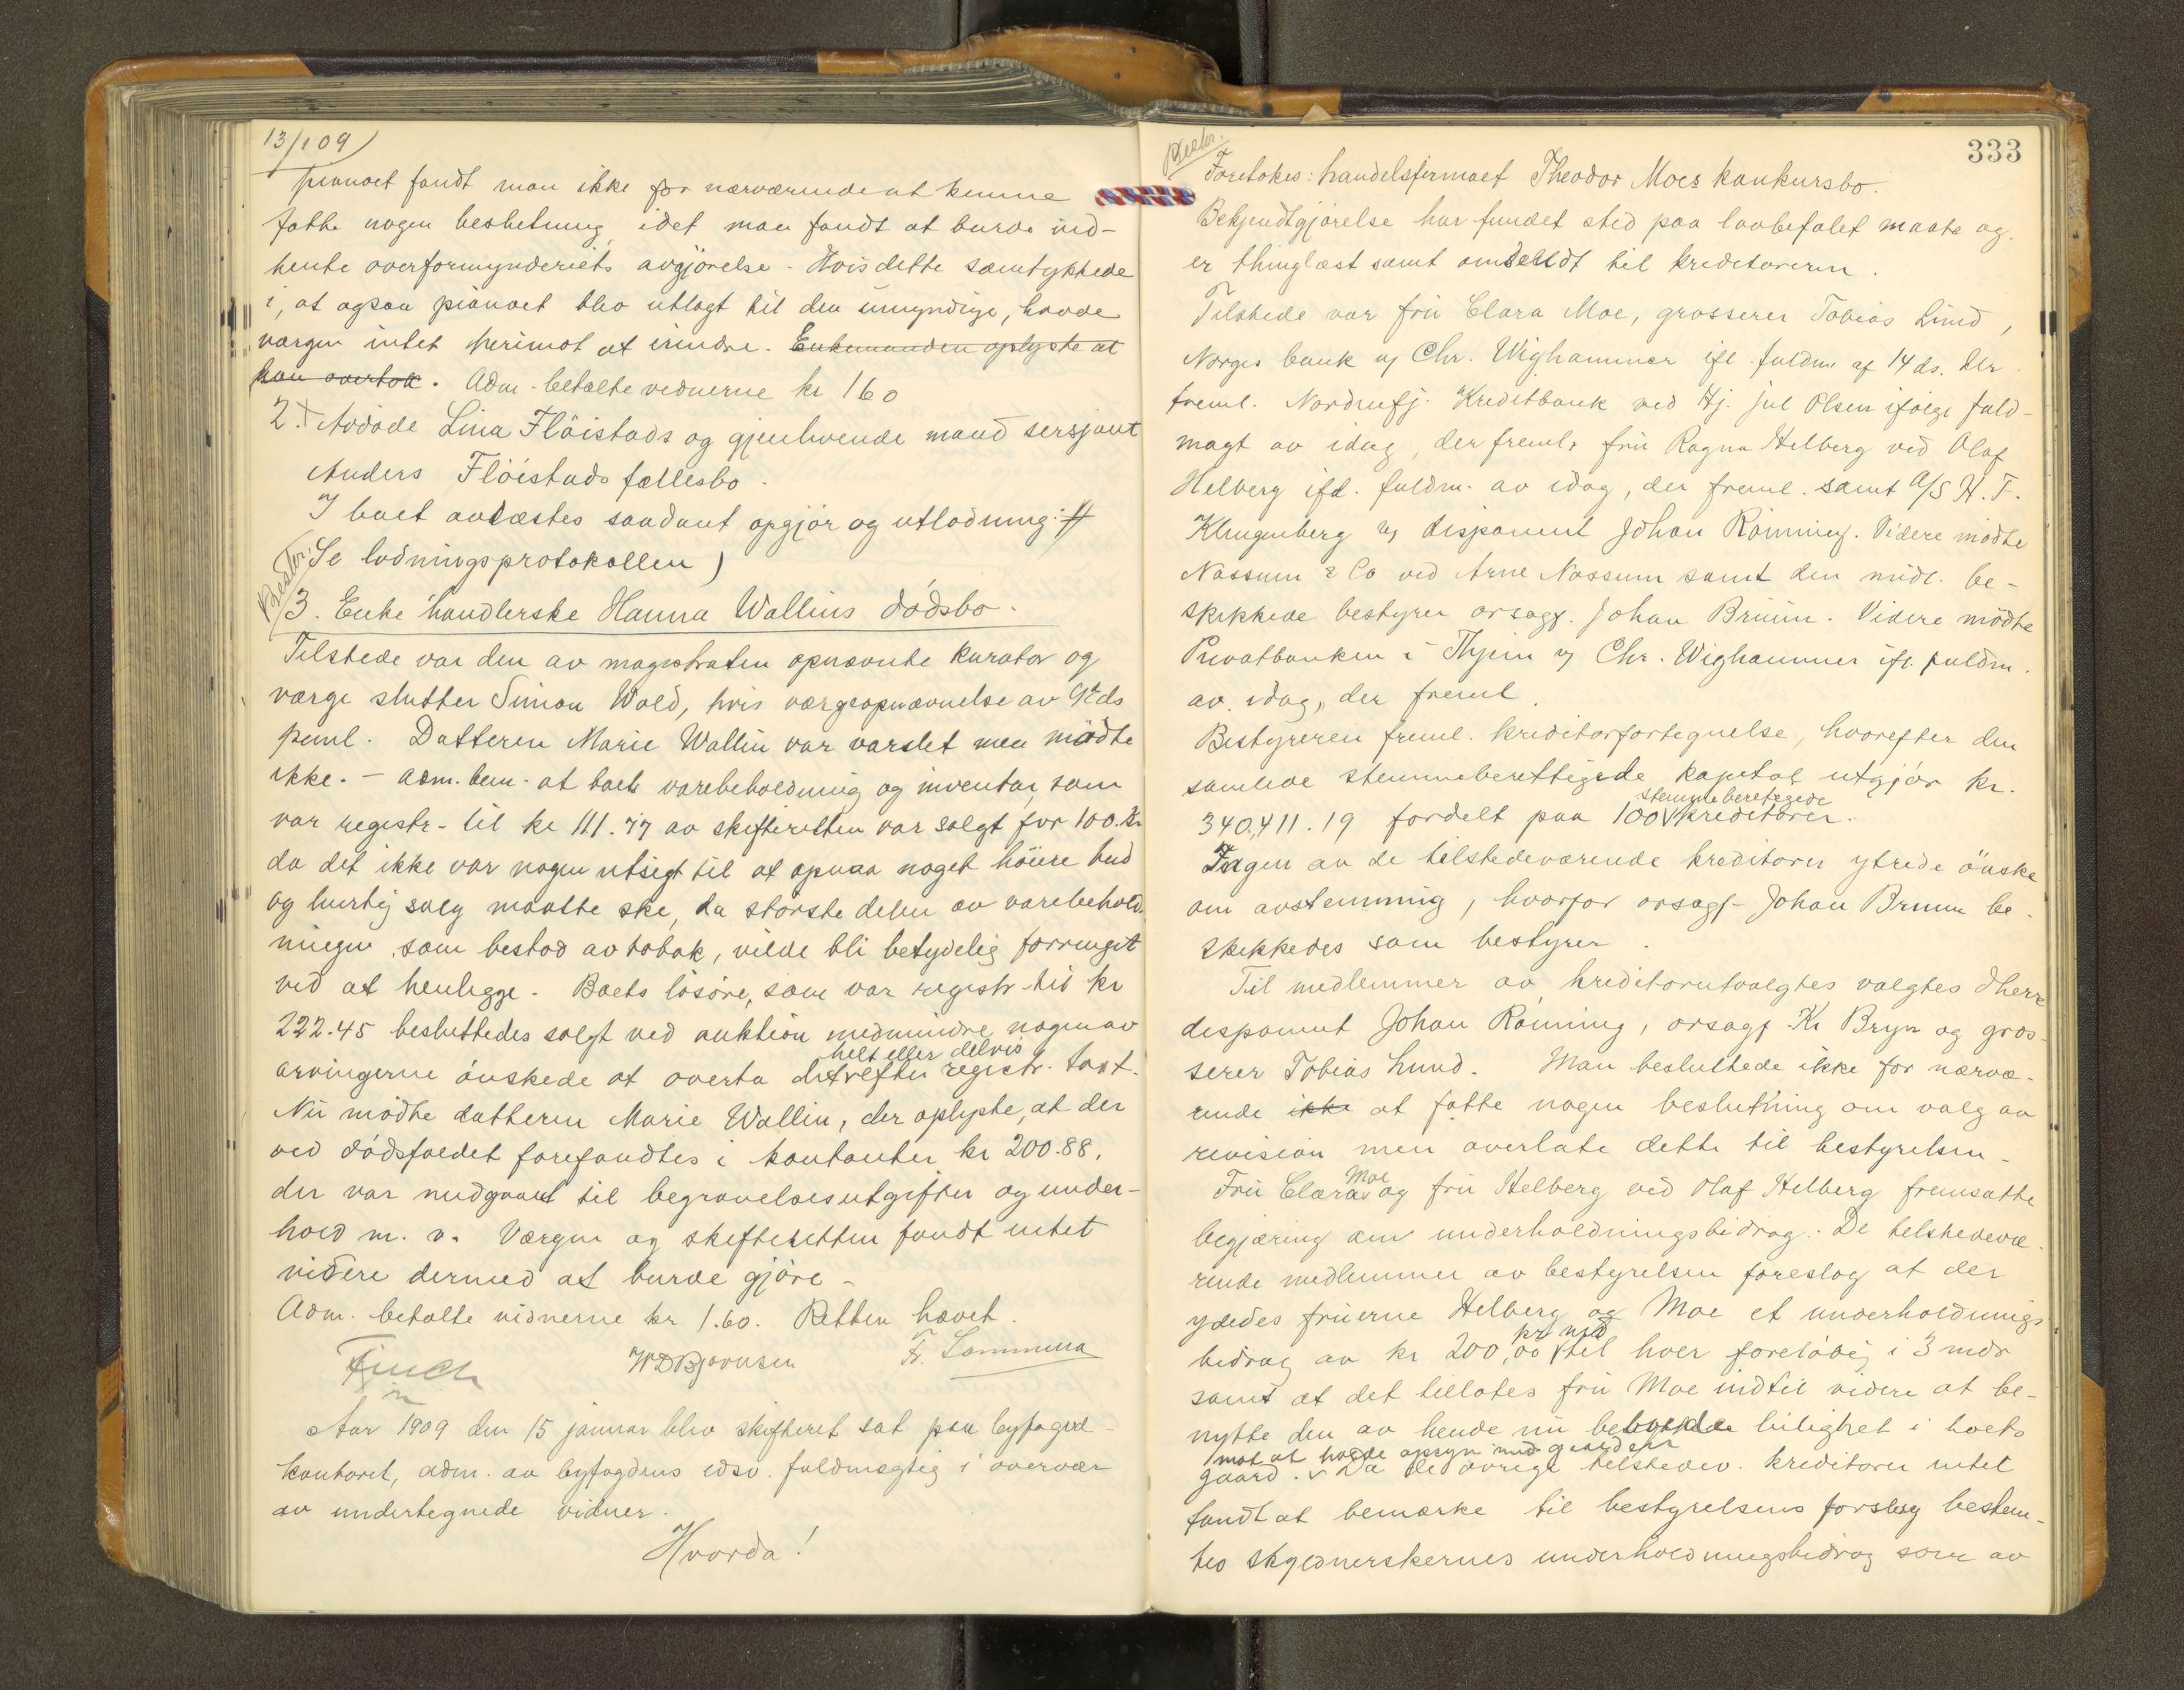 13/1 09
pianoet fandt man ikke for nærværende at kunne
fatte nogen beslutning, idet man fandt at burde ind-
hente overformynderiets avgjörelse. Hvis dette samtykkede
i, at ogsaa pianoet blev utlagt til den umyndige, havde
vergen intet herimot at erindre. Enkemanden oplyste at
han overtok. Adm. betalte vidnerne kr 160
2. Avdöde Lina Flöistads og gjenlevende mand sersjant
Anders Flöistads fællesbo.
I boet avlæstes saadant opgjör og utlodning:
Se lodningsprotokollen)
Bestr.
3. Enke handlerske Hanna Wallins dödsbo.
Tilstede var den av magistraten opnævnte kurator og
værge slutter Simon Wold, hvis værgeopnævnelse av 9de ds
freml. Datteren Marie Wallin var varslet men mödte
ikke. – Adm. bem. at boets varebeholdning og inventar, som
var registr. til kr 111.77 av skifteretten var solgt for 100.Kr
da det ikke var nogen utsigt til at opnaa noget höiere bud
og hurtig salg maatte ske, da störste delen av varebehold-
ningen, som bestod av tobak, vilde bli betydelig forringet
ved at henligge. Boets lösöre, som var registr. til kr
222.45 besluttedes solgt ved auktion medmindre nogen av
helt eller delvis
arvingerne önskede at overta det efter registr. taxt.
Nu mödte datteren Marie Wallin, der oplyste, at der
ved dödsfaldet forefandtes i kontanter kr 200.88,
der var medgaaet til begravelsesutgifter og under-
hold m. v. Værgen og skifteretten fandt intet
videre dermed at burde gjöre.
Adm. betalte vidnerne kr 1.60. Retten hævet.
Finch W D Bjørnsen Fr. Lammena
Aar 1909 den 15 januar blev skifteret sat paa byfogd-
kontoret, adm. av byfogdens edsv. fuldmægtig i overvær
av undertegnede vidner.
Hvorda!
333
Bestr.
Foretokes: handelsfirmaet Theodor Moes konkursbo.
Bekjendtgjörelse har fundet sted paa lovbefalet maate og
er thinglæst samt omsendt til kreditorerne.
Tilstede var fru Clara Moe, grosserer Tobias Lund,
Norges bank v/ Chr. Wighammer ifl. fuldm af 14 ds. der
freml. Nordenfj. Kreditbank ved Hj. Jul Olsen ifölge fuld-
magt av idag, der freml, fru Ragna Helberg ved Olaf
Helberg ifl. fuldm. av idag, der freml. samt A/S H. F.
Klingenberg v/ disponent Johan Rönning. Videre mödte
Nossum & Co ved Arne Nossum samt den midl. be-
skikkede bestyrer orsagf. Johan Bruun. Videre mödte
Privatbanken i Thjem v/ Chr. Wighammer ifl. fuldm.
av idag, der freml.
Bestyreren freml. kreditorfortegnelse, hvorefter den
samlede stemmeberettigede kapital utgjör kr.
stemmeberettigede
340,411.19 fordelt paa 100 kreditorer.
Ingen av de tilstedeværende kreditorer ytrede önske
om avstemning, hvorfor orsagf. Johan Bruun be-
skikkedes som bestyrer.
Til medlemmer av kreditorutvalgtes valgtes dherr
disponent Johan Rönning, orsagf. Kr Bryn og gros-
serer Tobias Lund. Man besluttede ikke for nærvæ-
rende ikke at fatte nogen beslutning om valg av
revision men overlate dette til bestyrelsen.
Moe
Fru Clara og fru Helberg ved Olaf Helberg fremsatte
begjæring om underholdningsbidrag. De tilstedevæ-
rende medlemmer av bestyrelsen foreslog at der
ydedes fruerne Helberg og Moe et underholdnings
pr md
bidrag av kr 200,00 til hver foreløbig i 3 mdr
samt at det tillotes fru Moe indtil videre at be-
nytte den av hende nu bebodde leilighet i boets
mot at holde opsyn med gaarden
gaard. Da de övrige tilstedev. kreditorer intet
fandt at bemærke til bestyrelsens forslag bestem-
tes skyldnerskernes underholdningsbidrag som av